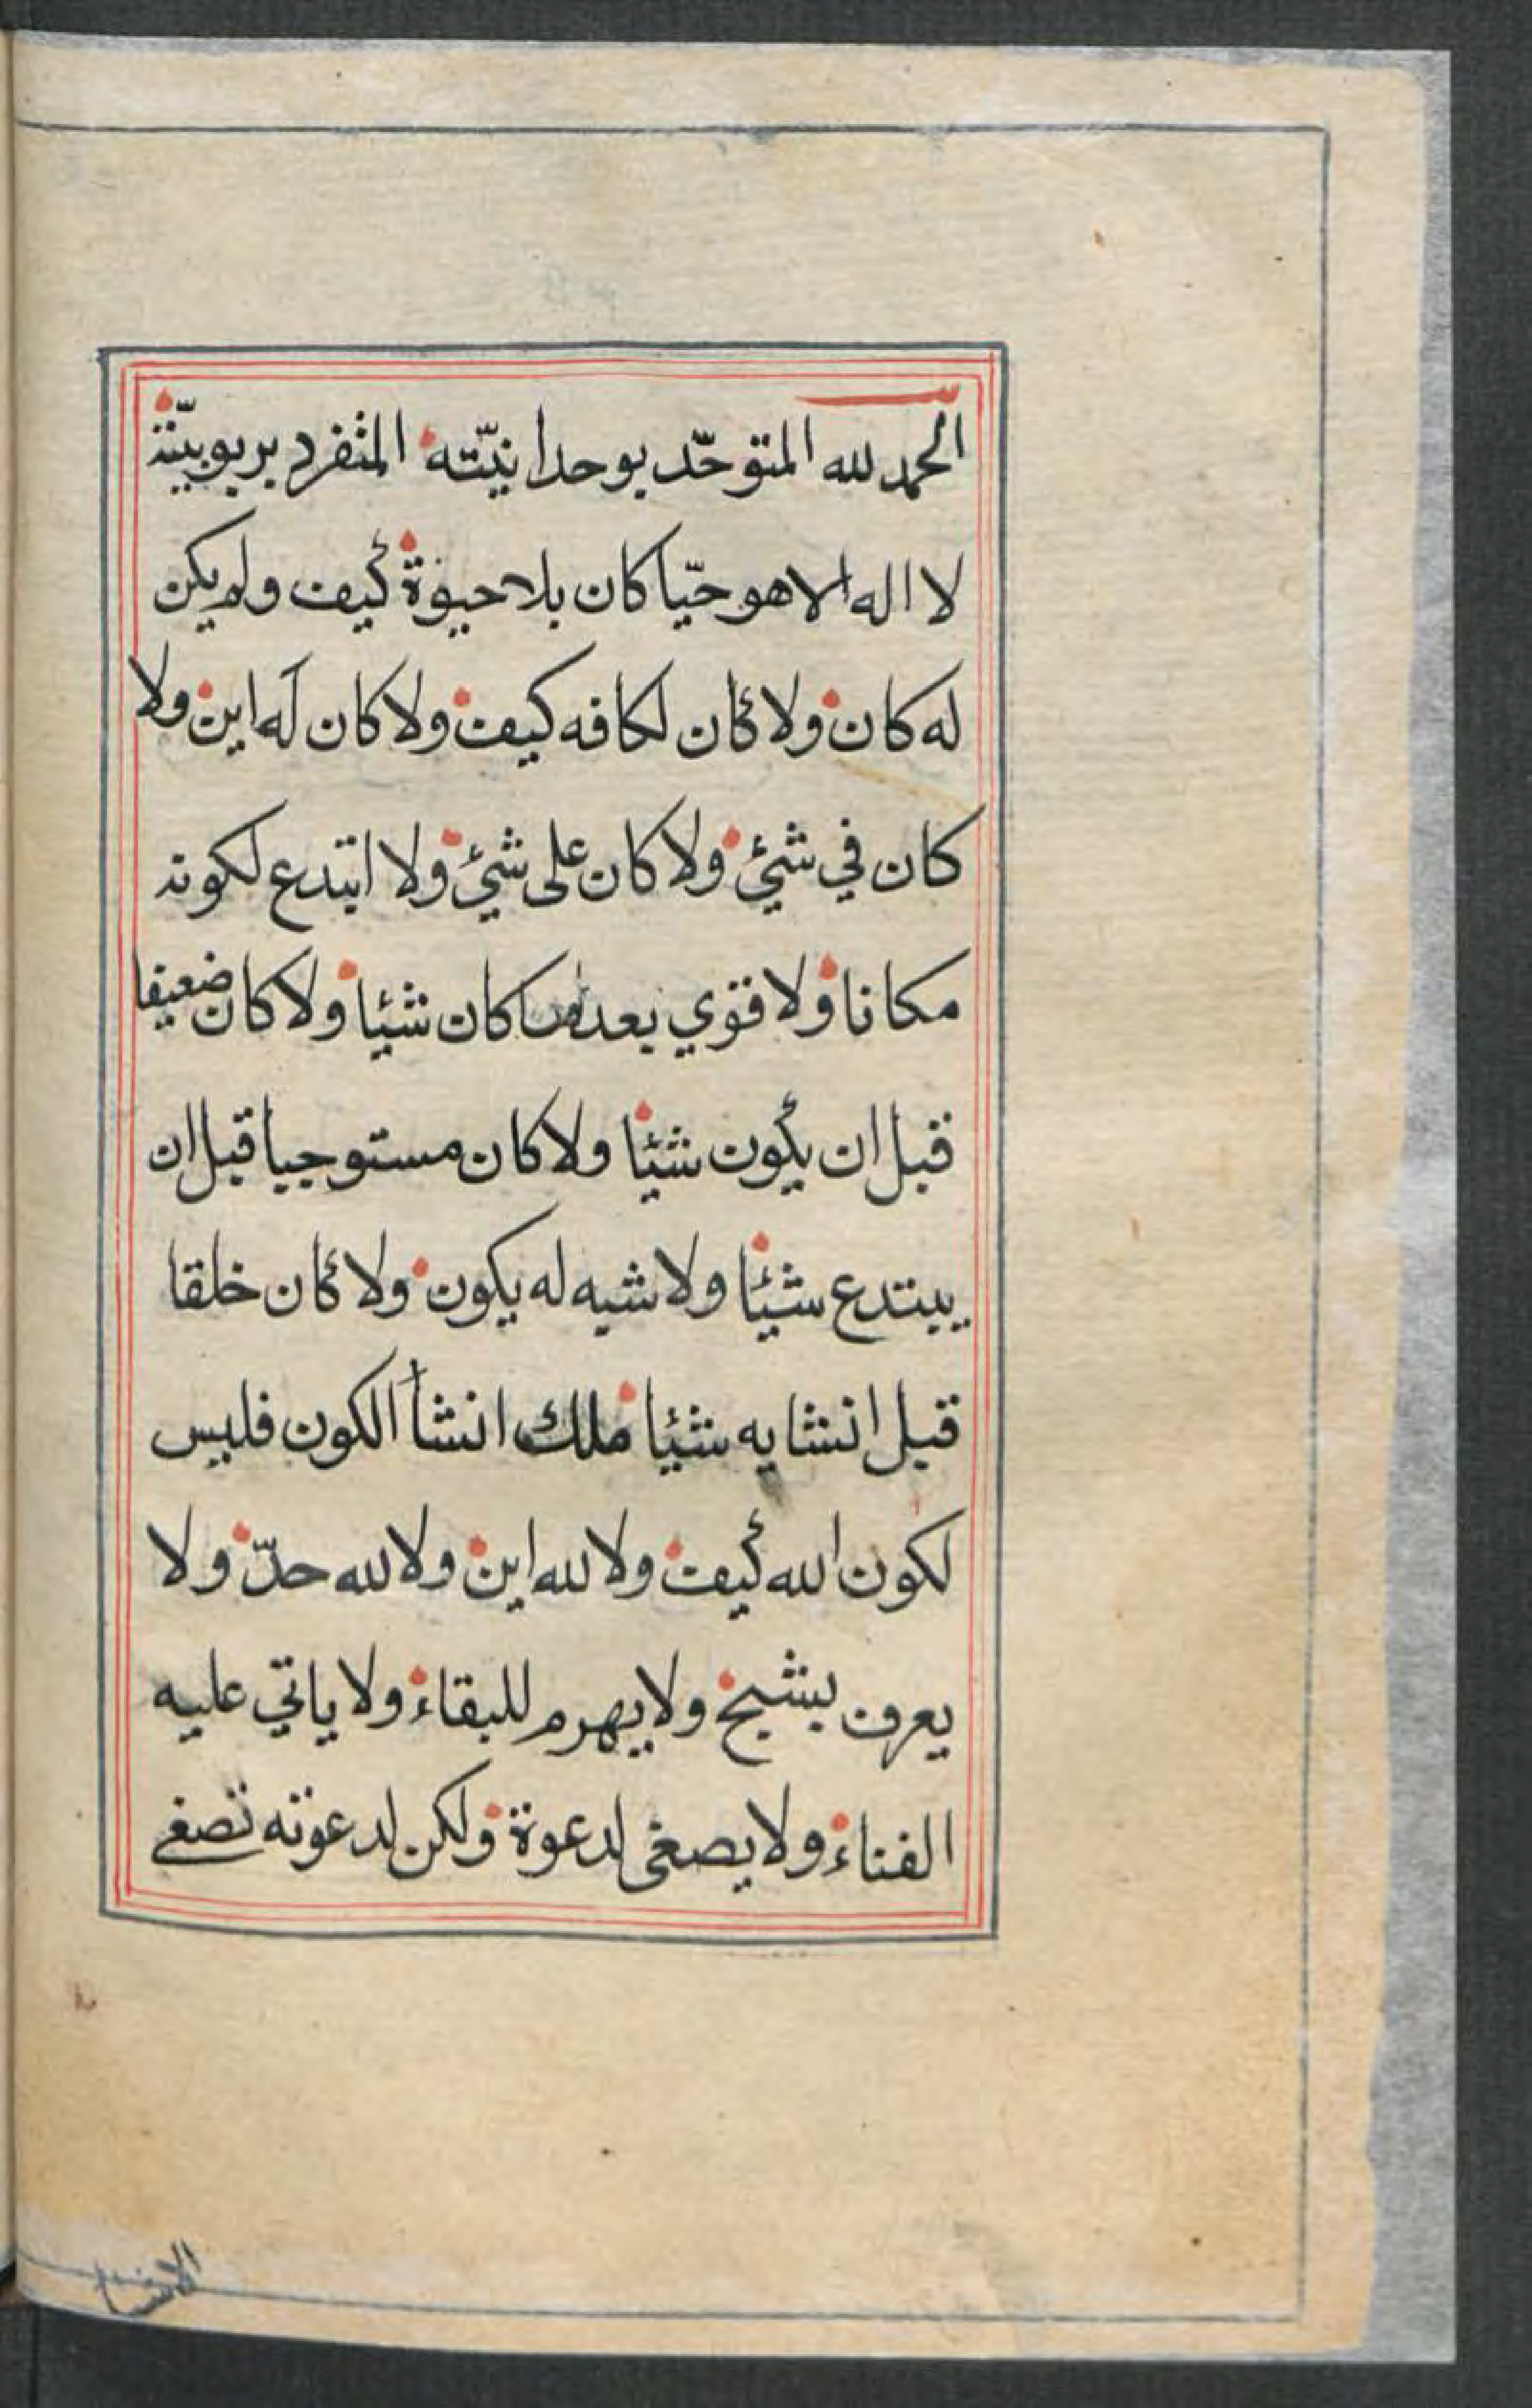 الحمد لله المتوحّد بوحدانيّته المتفرد بربوبيّته
لا اله الا هو حيّا كان بلا حيوة كيف ولم يكن
له كان ولا كان لكافه كيف ولا كان له اين ولا
كان في شيئ ولا كان على شيئ ولا ابتدع لكونه
مكانا ولا قوي بعد ما كان شيئا ولا كان ضعيفا
قبل ان يكون شيئا ولا كان مستوجبا قبل ان
يبتدع شيئا ولا شبه له يكون ولا كان خلقا
قبل انشايه شيئا ملك انشأ الكون فليس
لكون الله كيف ولا لله اين ولا لله حدّ ولا
يعرف بشبح ولا يهرم للبقاء ولا ياتي عليه
الفناء ولا يصغى لدعوة ولكن لدعوته تصغى